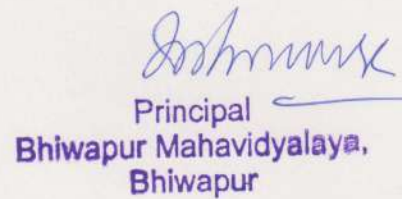 Principal
Bhiwapur Mahavidyalaya,
Bhiwapur